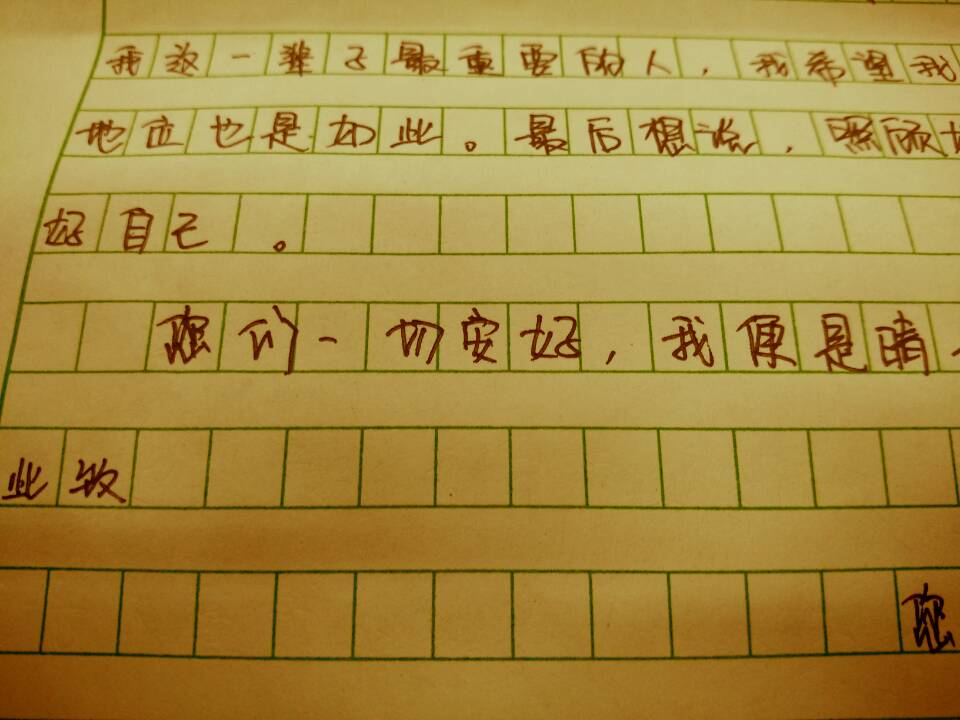 我这一辈子最重要的人，我希望我
地位也是如此。最后想说，照顾
好自己。
您们一切安好，我便是晴
此致
您